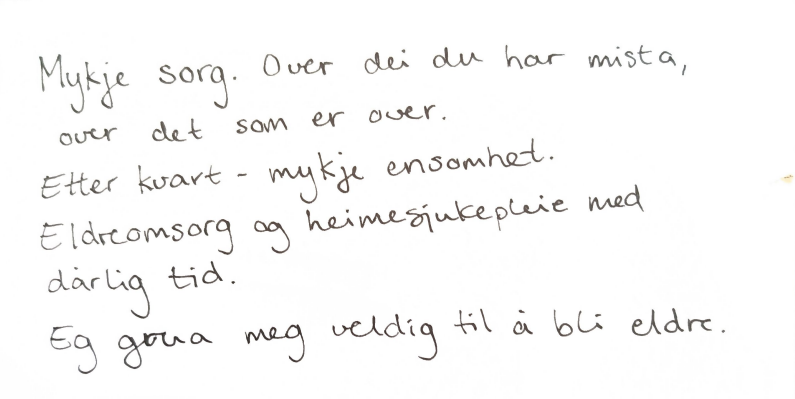 Mykje sorg. Over dei du har mista,
over det som er over.
Etter kvart - mykje ensomhet.
Eldreomsorg og heimesjukepleie med
dårlig tid.
Eg grua meg veldig til å bli eldre.